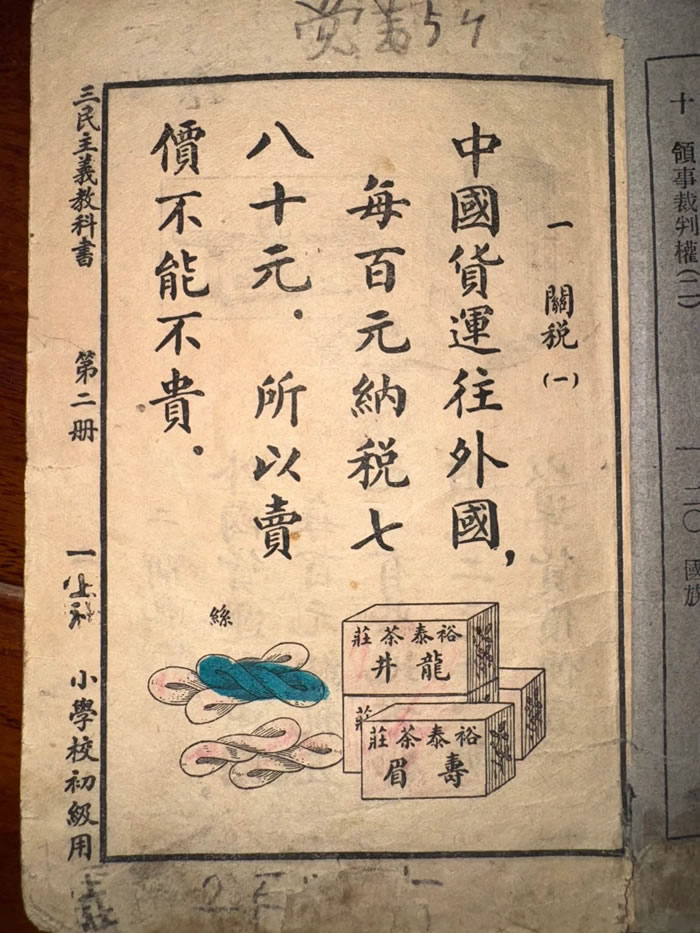 十 領事裁判權(二)
一 二〇 國族
一 關税(一)
中國貨運往外國，
每百元納税七
八十元．所以賣
價不能不貴。
絲
莊茶泰裕
井龍
莊
莊茶泰裕
眉壽
三民主義教科書 第二册 小學校初級用
54